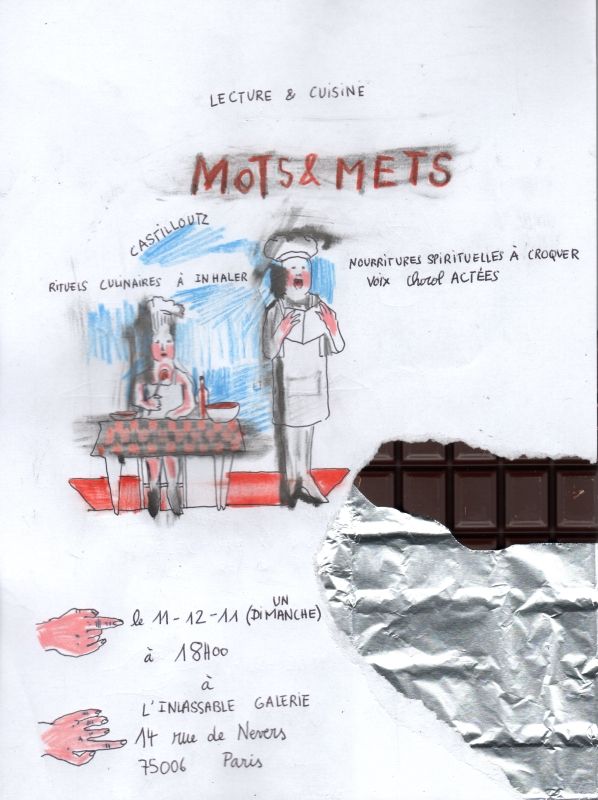 LECTURE & CUISINE
MOTS & METS
CASTILLOUTZ
RITUELS CULINAIRES À INHALER
NOURRITURES SPIRITUELLES À CROQUER
VOIX chocol ACTÉES
le 11-12-11 (UN DIMANCHE)
à 18H00
à
L'INLASSABLE GALERIE
14 rue de Nevers
75006 Paris